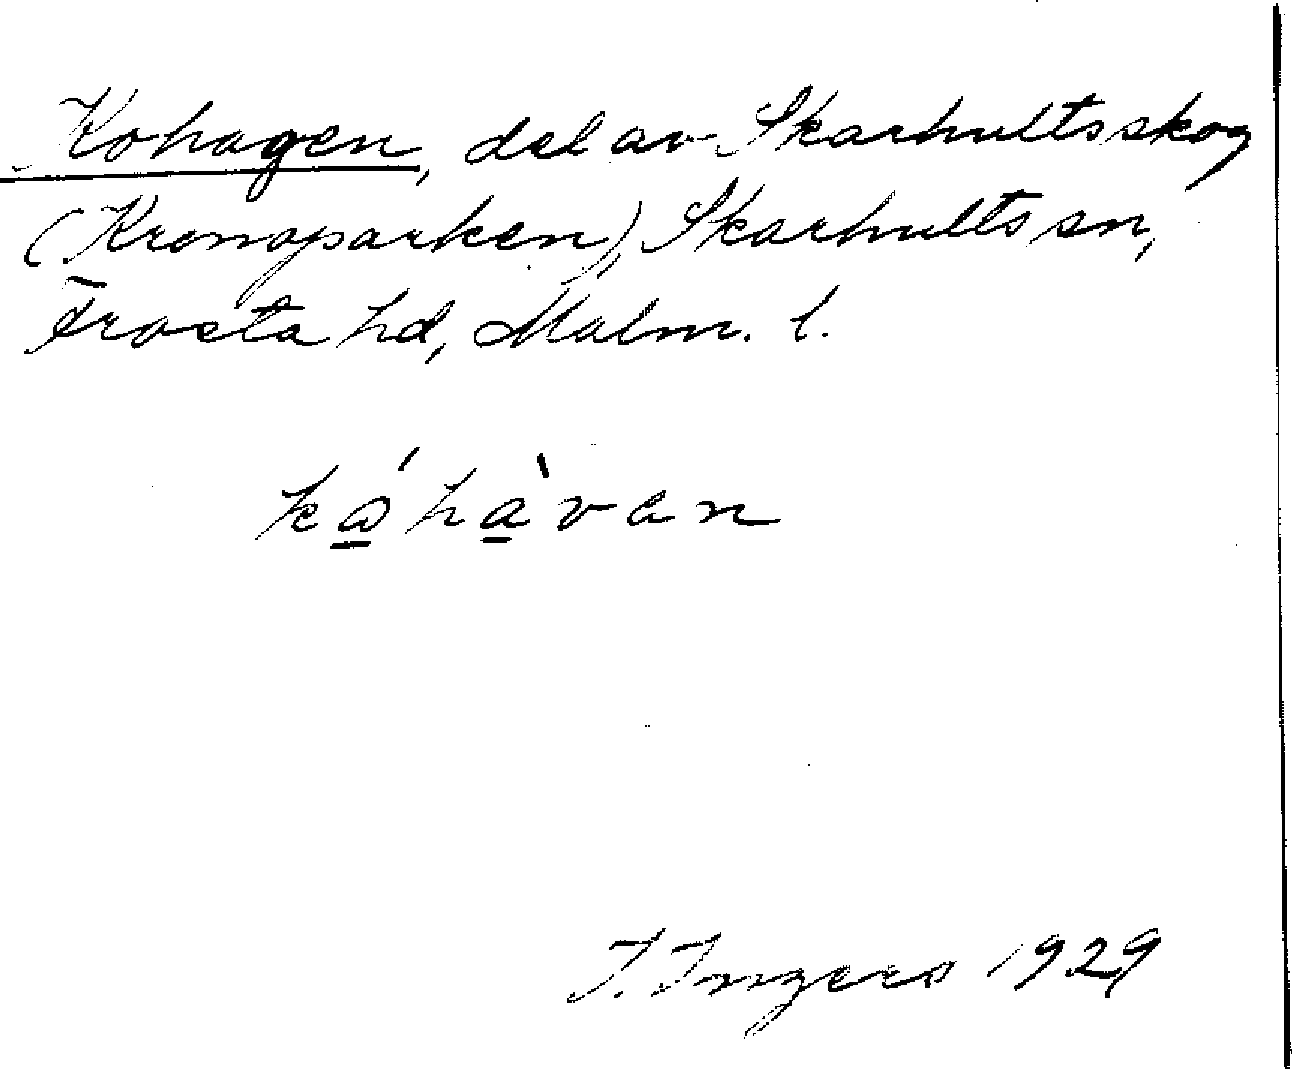 Kohagen, del av Skarhultsskog
(Kronoparken), Skarhults sn,
Frosta hd, Malm. l.
kó̱hà̱van
I. Ingers 1929